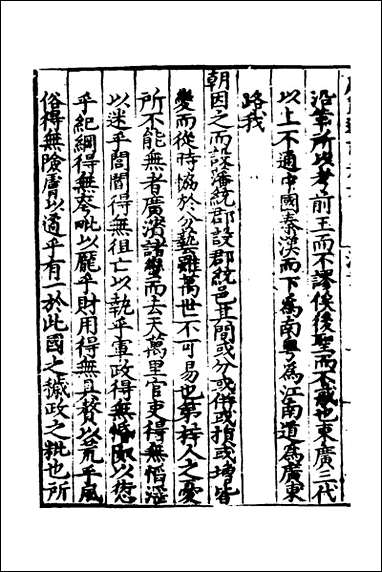 沿革所以考前王而不謬俟後聖而不惑也東廣三代
以上不通中國秦漢而下為南粤為江南道為廣東
路我
朝因之而設藩統郡設郡統邑其間或分或併或指或增皆
變而從時協於分埶雖萬世不可易也第梓人之憂
所不能無者廣濱諸蠻而去天萬里官吏得無慆滛
以迷乎閭閻得無徂亡以執乎軍政得無以愆
乎紀綱得無孝毗以龎乎財用得無具贅以荒乎風
俗得無險膚以過乎有一於此國之穢政之粃也所